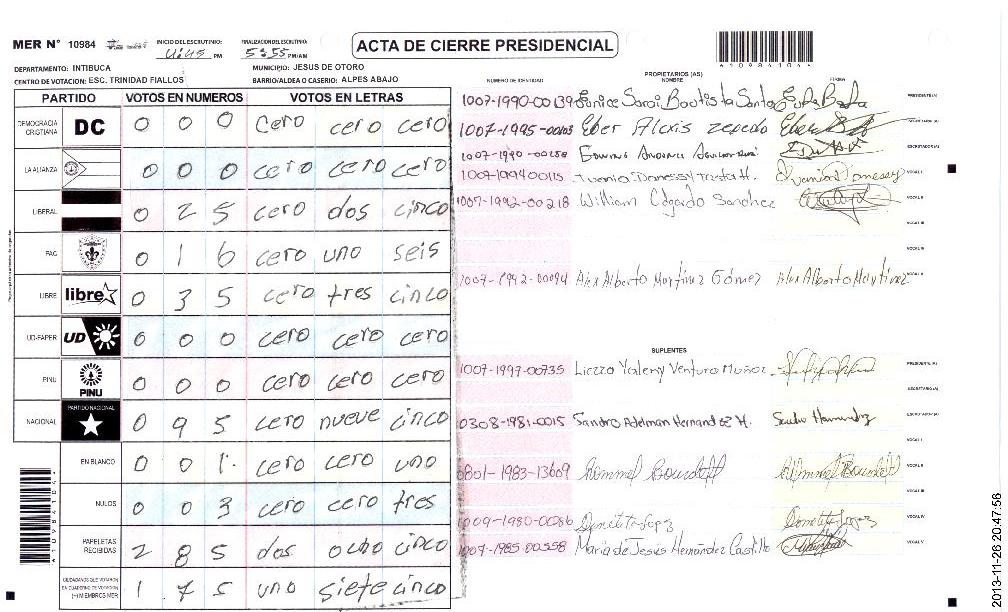 MER N° 10984 INICIO DEL ESCRUTINIO: 4:45 PM FINALIZACION DEL ESCRUTINIO: 5:55 PM/AM
ACTA DE CIERRE PRESIDENCIAL
DEPARTAMENTO: INTIBUCA MUNICIPIO: JESUS DE OTORO
CENTRO DE VOTACION: ESC. TRINIDAD FIALLOS BARRIO/ALDEA O CASERIO: ALPES ABAJO
PARTIDO VOTOS EN NUMEROS VOTOS EN LETRAS
DEMOCRACIA CRISTIANA DC 0 0 0 cero cero cero
LA ALIANZA 0 0 0 cero cero cero
LIBERAL 0 2 5 cero dos cinco
PAC 0 1 6 cero uno seis
LIBRE libre 0 3 5 cero tres cinco
UD-FAPER UD 0 0 0 cero cero cero
PINU PINU 0 0 0 cero cero cero
NACIONAL PARTIDO NACIONAL 0 9 5 cero nueve cinco
EN BLANCO 0 0 1 cero cero uno
NULOS 0 0 3 cero cero tres
PAPELETAS RECIBIDAS 2 8 5 dos ocho cinco
CIUDADANOS QUE VOTARON EN CUADERNO DE VOTACION (+) MIEMBROS MER 1 7 5 uno siete cinco
PROPIETARIOS (AS)
NUMERO DE IDENTIDAD NOMBRE FIRMA
1007-1990-00139 Eunice Sarai Bautista Santos PRESIDENTE (A)
1007-1995-00103 Eber Alexis zepedo SECRETARIO (A)
1007-1990-00258 ESCRUTADOR (A)
1007-1994 00115 VOCAL I
1007-1992-00218 William Edgardo Sanchez VOCAL II
VOCAL III
VOCAL IV
1007-1992-00094 Alex Alberto Martinez Gómez Alex Alberto Martinez VOCAL V
SUPLENTES
1007-1997-00735 Yaleny Ventura Muñoz PRESIDENTE (A)
SECRETARIO (A)
0308-1981-0015 Sandro Adelman Hernandez H. Hernandez ESCRUTADOR (A)
VOCAL I
0801-1983-13609 VOCAL II
VOCAL III
1009-1980-00086 VOCAL IV
1007-1985-00558 Maria de Jesus Hernández Castillo VOCAL V
4109841044
4109841044
2013-11-26 20:47:56